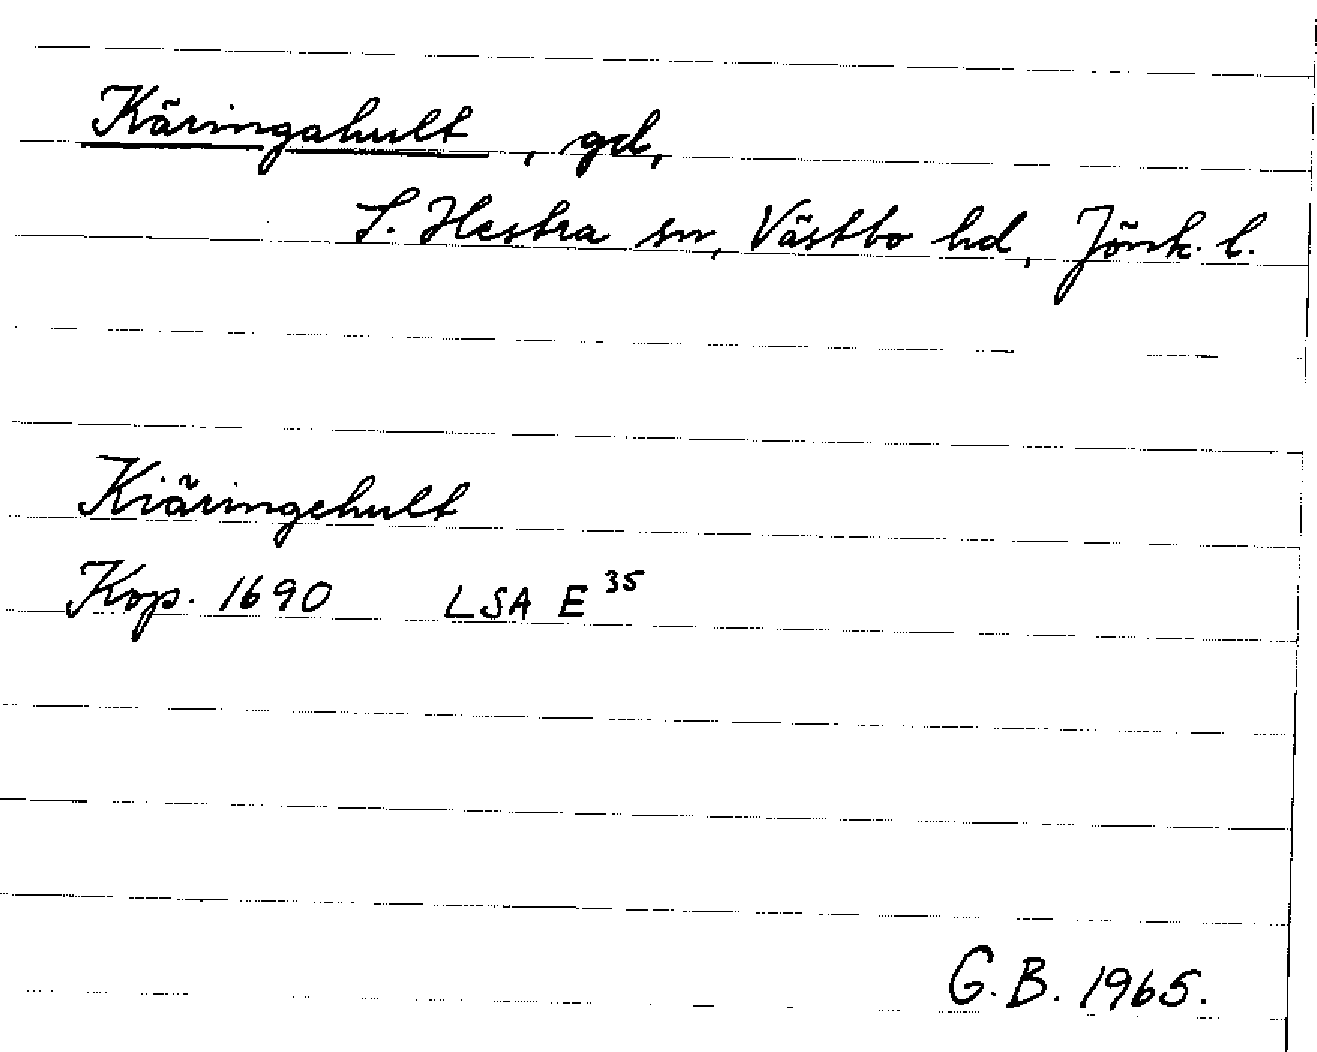 Käringahult, gd,
S. Hestra sn, Västbo hd, Jönk. l.
Kiäringehult
Kop. 1690 LSA E 35
G.B. 1965.